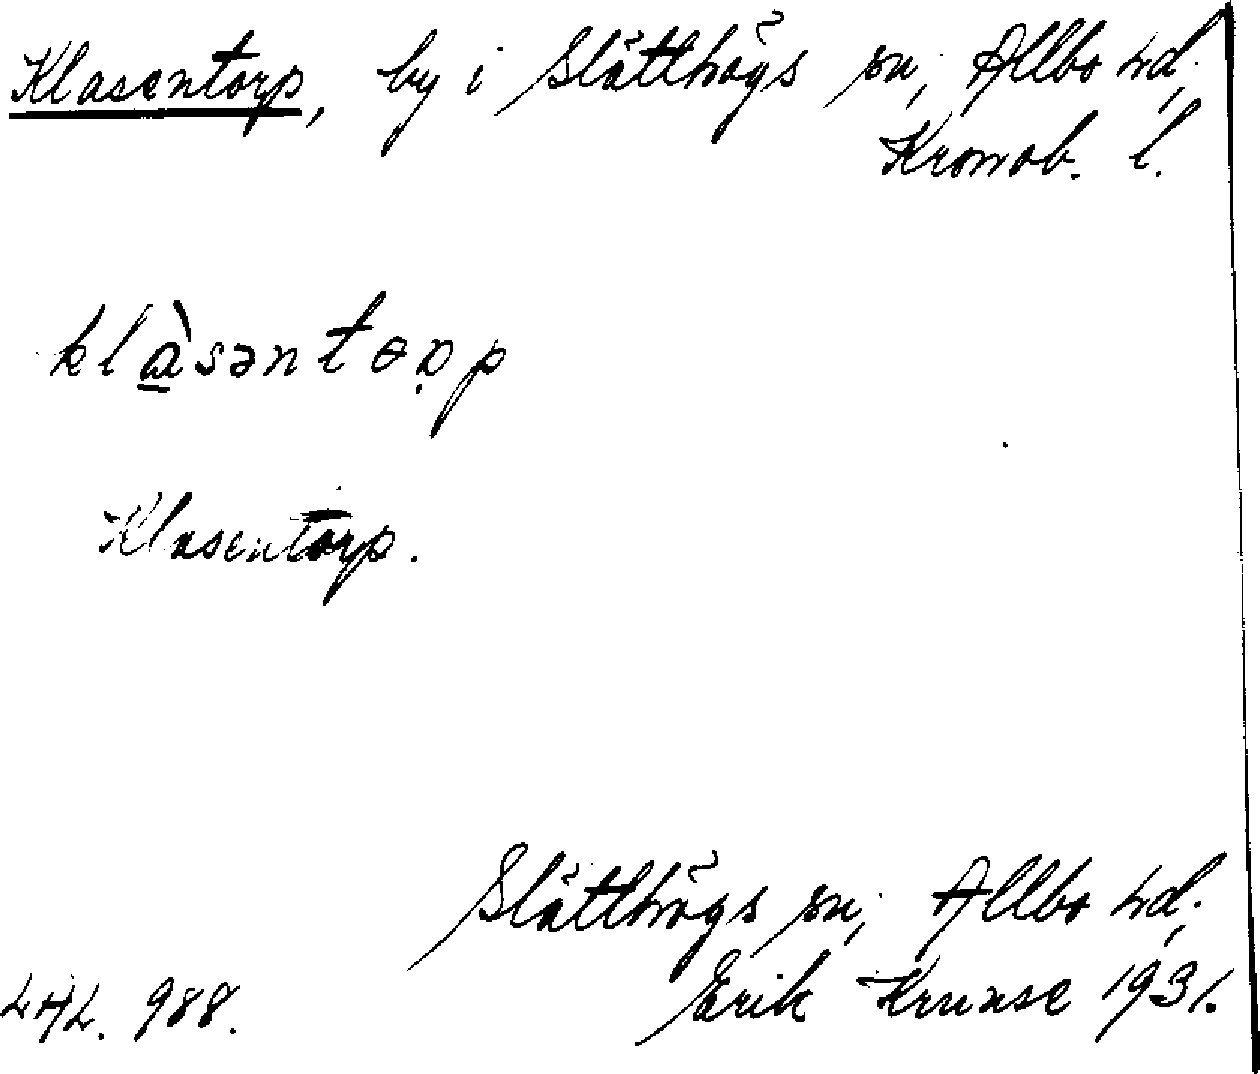 Klasentorp, by i Slätthögs sn, Allbo hd,
Kronob. l.
klɑ̱̀səntɵꞧ̣p
Klasentorp.
Slätthögs sn, Allbo hd,
Erik Kruuse 1931.
LHL. 988.